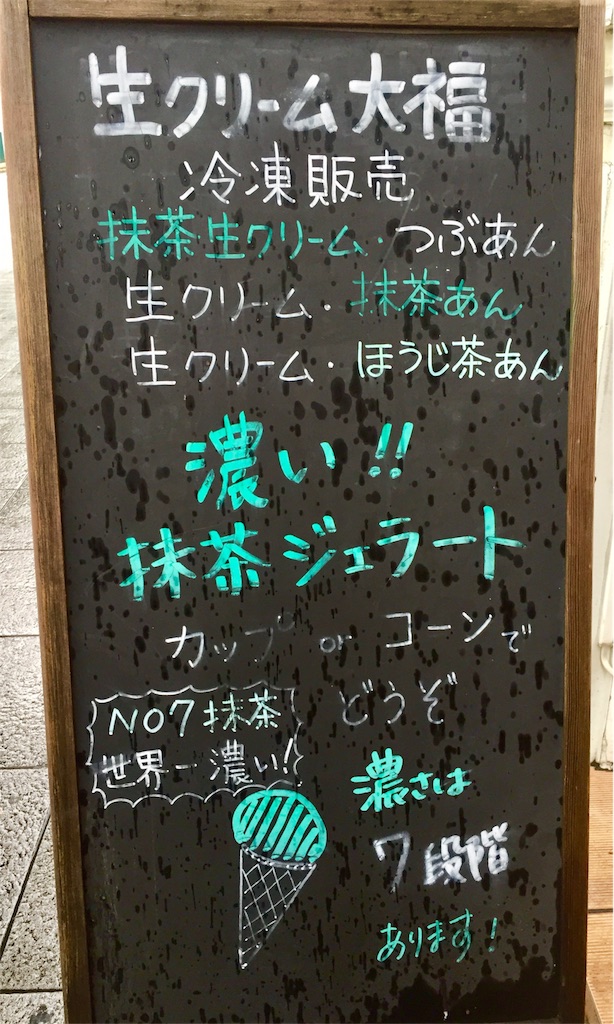 生クリーム大福
冷凍販売
抹茶生クリーム・つぶあん
生クリーム・抹茶あん
生クリーム・ほうじ茶あん
濃い!!
抹茶ジェラート
カップ or コーンで
どうぞ
NO7抹茶
世界一濃い!
濃さは
7段階
あります!